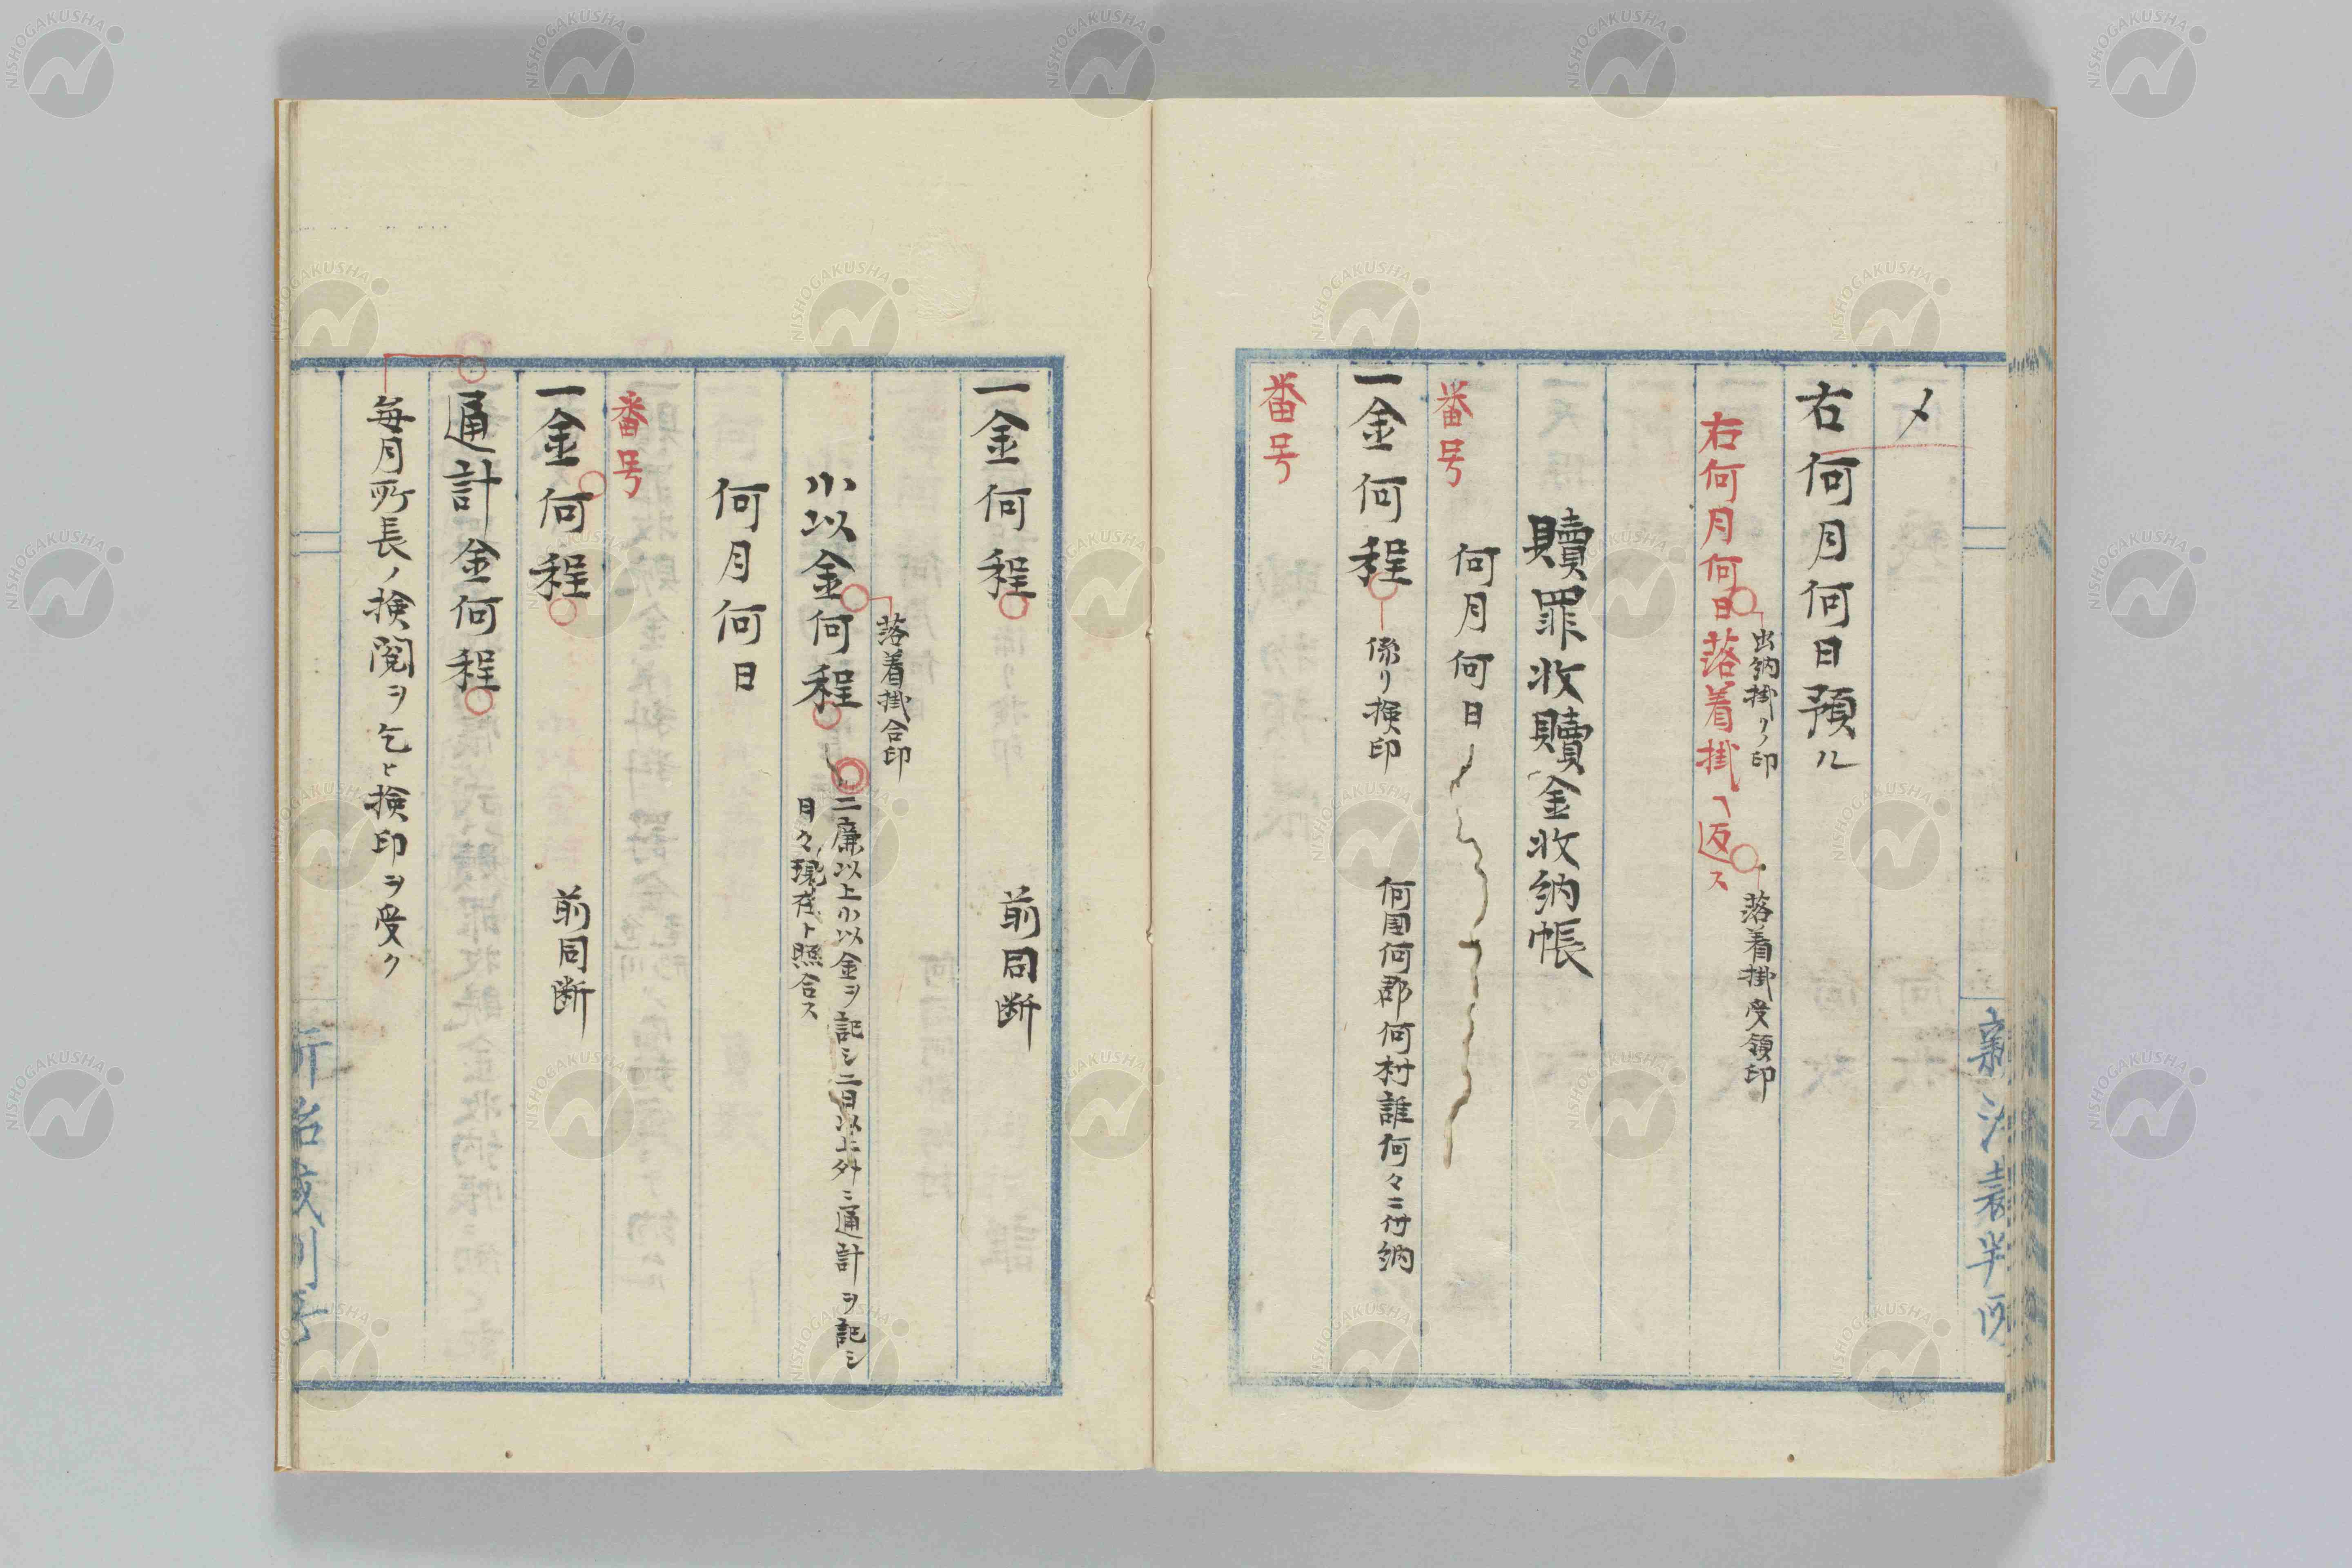 〆
右何月何日預ル
出納掛リノ印
落着掛受領印
右何月何日落着掛ヘ返ス
贖罪収贖金収納帳
何月何日
番号
一金何程
係リ検印
何国何郡何村誰何々ニ付納
番号
一金何程
前同断
落着掛合印
小以金何程
二廉以上小以金ヲ記シ二日以上外ニ通計ヲ記シ
月々現在ト照合ス
何月何日
番号
一金何程
前同断
通計金何程
毎月所長ノ検閲ヲ乞ヒ検印ヲ受ク
NISHOGAKUSHA